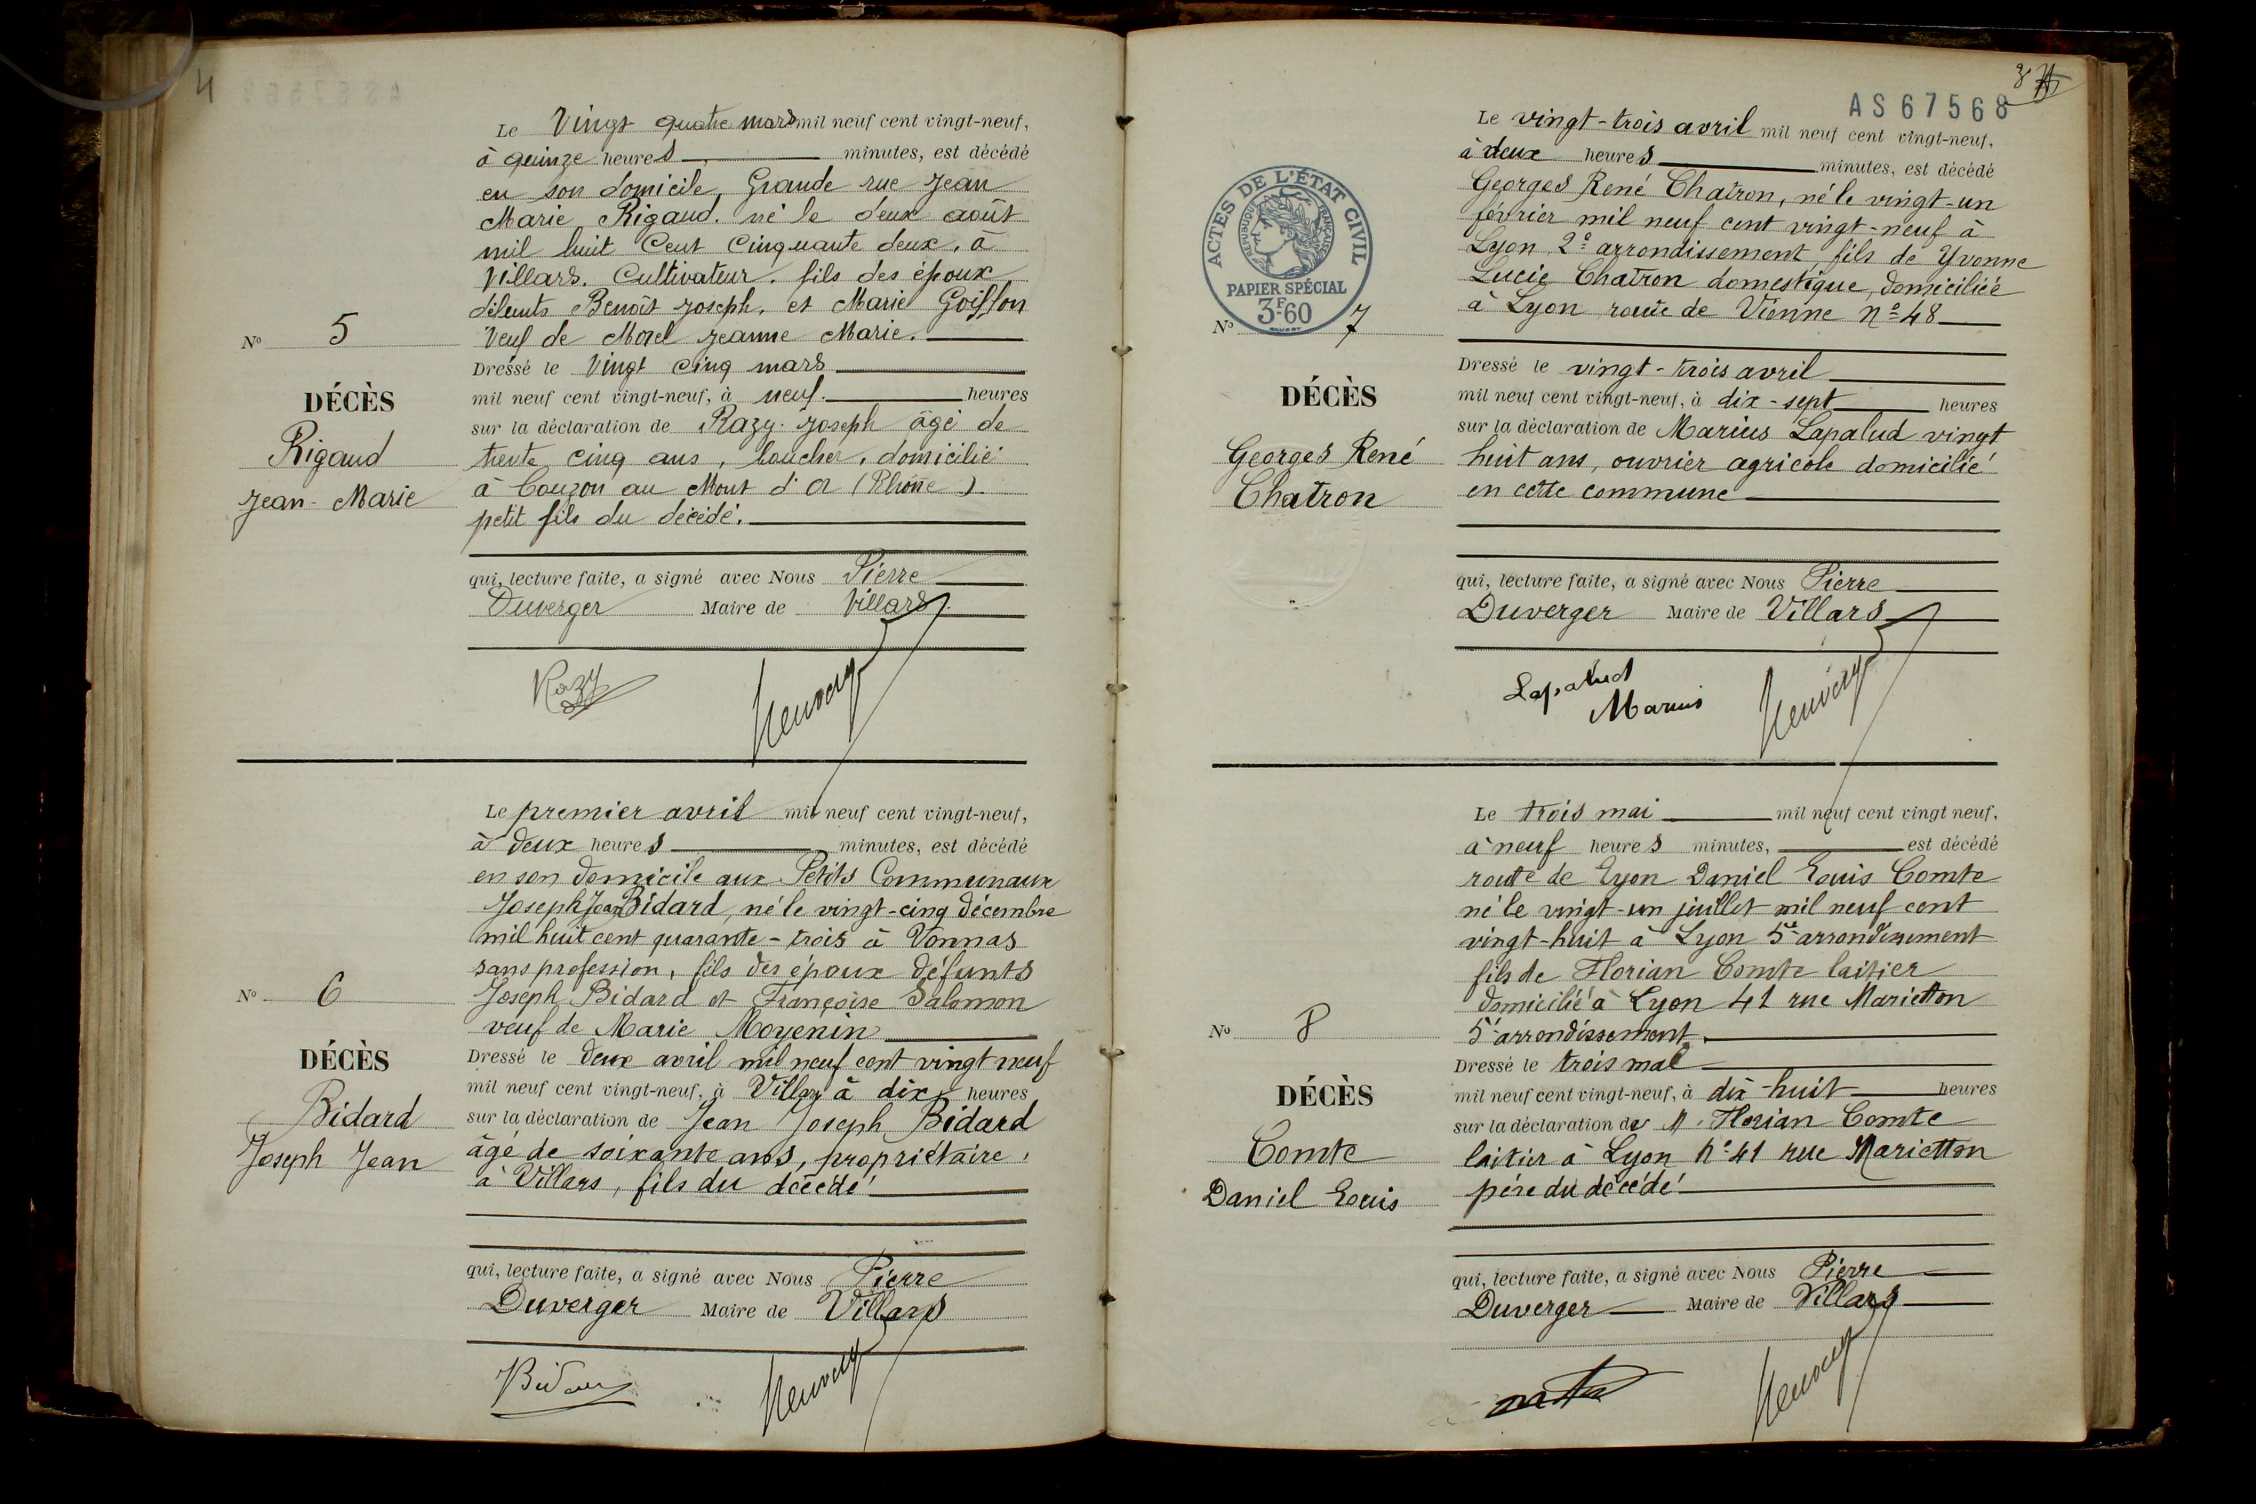 4
Le Vingt quatre mars mil neuf cent vingt-neuf,
à quinze heures minutes, est décédé
en son domicile, Grande rue Jean
Marie Rigaud. né le deux août
mil huit Cent Cinquante deux, à
Villars. Cultivateur. fils des époux
défunts Benoît Joseph, et Marie Goiffon
Veuf de Morel Jeanne Marie.
Dressé le Vingt Cinq mars
mil neuf cent vingt-neuf, à neuf. heures
sur la déclaration de Razy Joseph âgé de
trente cinq ans, boucher, domicilié
à Couzon au Mont d'Or (Rhône)
petit fils du décédé.
qui, lecture faite, a signé avec Nous Pierre
Duverger Maire de Villars
Razy
Duverger
N° 5
DÉCÈS
Rigaud
Jean-Marie
Le premier avril mil neuf cent vingt-neuf,
à deux heures minutes, est décédé
en son domicile aux Petits Communaux
Joseph Jean Bidard, né le vingt-cinq décembre
mil huit cent quarante-trois à Vonnas
sans profession, fils des époux défunts
Joseph Bidard et Françoise Salomon
veuf de Marie Moyenin
Dressé le deux avril mil neuf cent vingt neuf
mil neuf cent vingt-neuf, à Villars à dix heures
sur la déclaration de Jean Joseph Bidard
âgé de soixante ans, propriétaire,
à Villars, fils du décédé
qui, lecture faite, a signé avec Nous Pierre
Duverger Maire de Villars
Bidard
Duverger
N° 6
DÉCÈS
Bidard
Joseph Jean
AS67568
Le vingt-trois avril mil neuf cent vingt-neuf,
à deux heures minutes, est décédé
Georges René Chatron, né le vingt-un
février mil neuf cent vingt-neuf à
Lyon 2e arrondissement, fils de Yvonne
Lucie Chatron domestique, domiciliée
à Lyon route de Vienne n° 48
Dressé le vingt-trois avril
mil neuf cent vingt-neuf, à dix-sept heures
sur la déclaration de Marius Lapalud vingt
huit ans, ouvrier agricole domicilié
en cette commune
qui, lecture faite, a signé avec Nous Pierre
Duverger Maire de Villars
Lapalud
Marius
Duverger
ACTES DE L'ÉTAT CIVIL
RÉPUBLIQUE FRANÇAISE
PAPIER SPÉCIAL
3F60
N° 7
DÉCÈS
Georges René
Chatron
Le trois mai mil neuf cent vingt neuf,
à neuf heures minutes, est décédé
route de Lyon Daniel Louis Comte
né le vingt-un juillet mil neuf cent
vingt-huit à Lyon 5e arrondissement
fils de Florian Comte laitier
domicilié à Lyon 41 rue Marietton
5e arrondissement.
Dressé le trois mai
mil neuf cent vingt-neuf, à dix-huit heures
sur la déclaration de M. Florian Comte
laitier à Lyon n° 41 rue Marietton
père du décédé
qui, lecture faite, a signé avec Nous Pierre
Duverger Maire de Villars
Duverger
N° 8
DÉCÈS
Comte
Daniel Louis